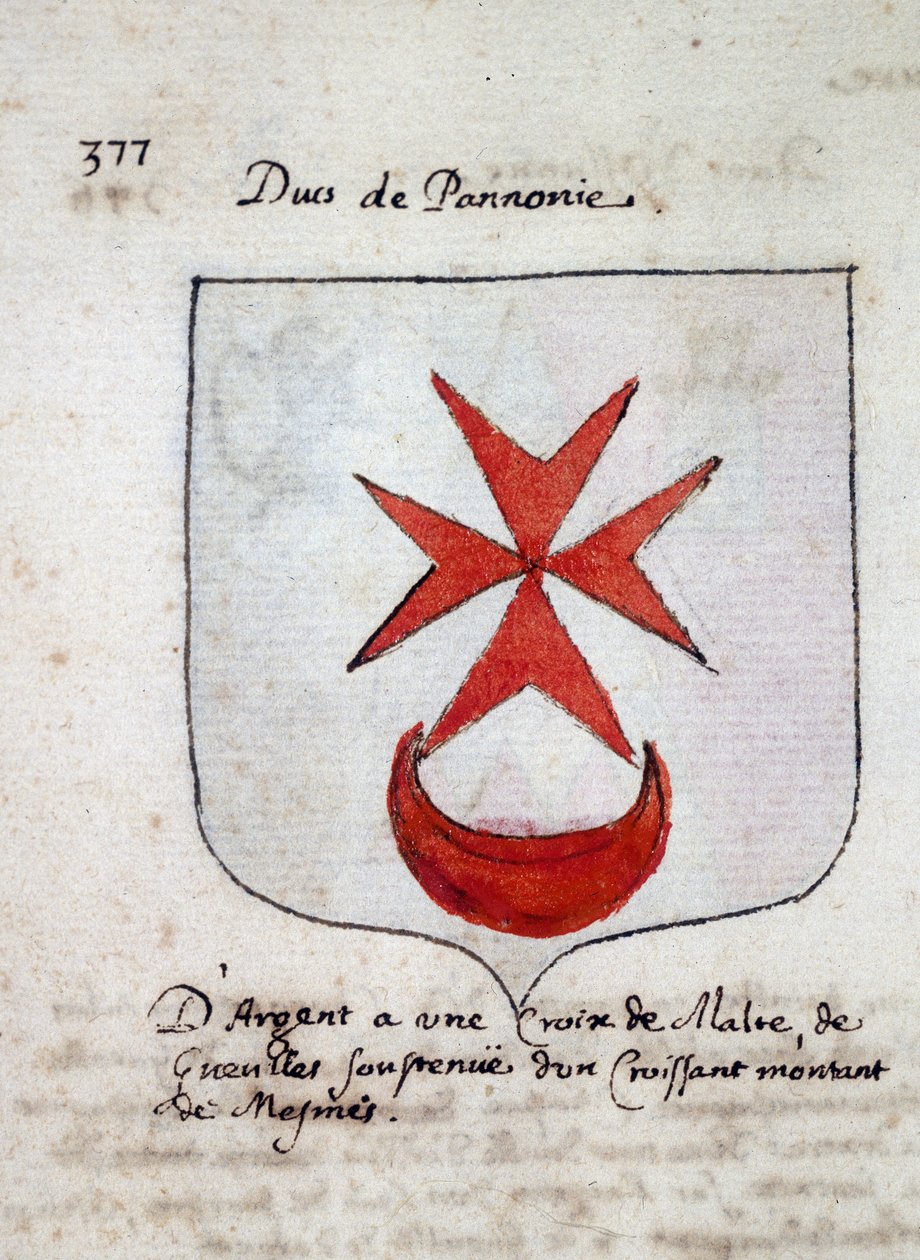 377
Ducs de Pannonie.
D'Argent a vne Croix de Malte, de
Gueulles soustenuë d'vn Croissant montant
de Mesmes.